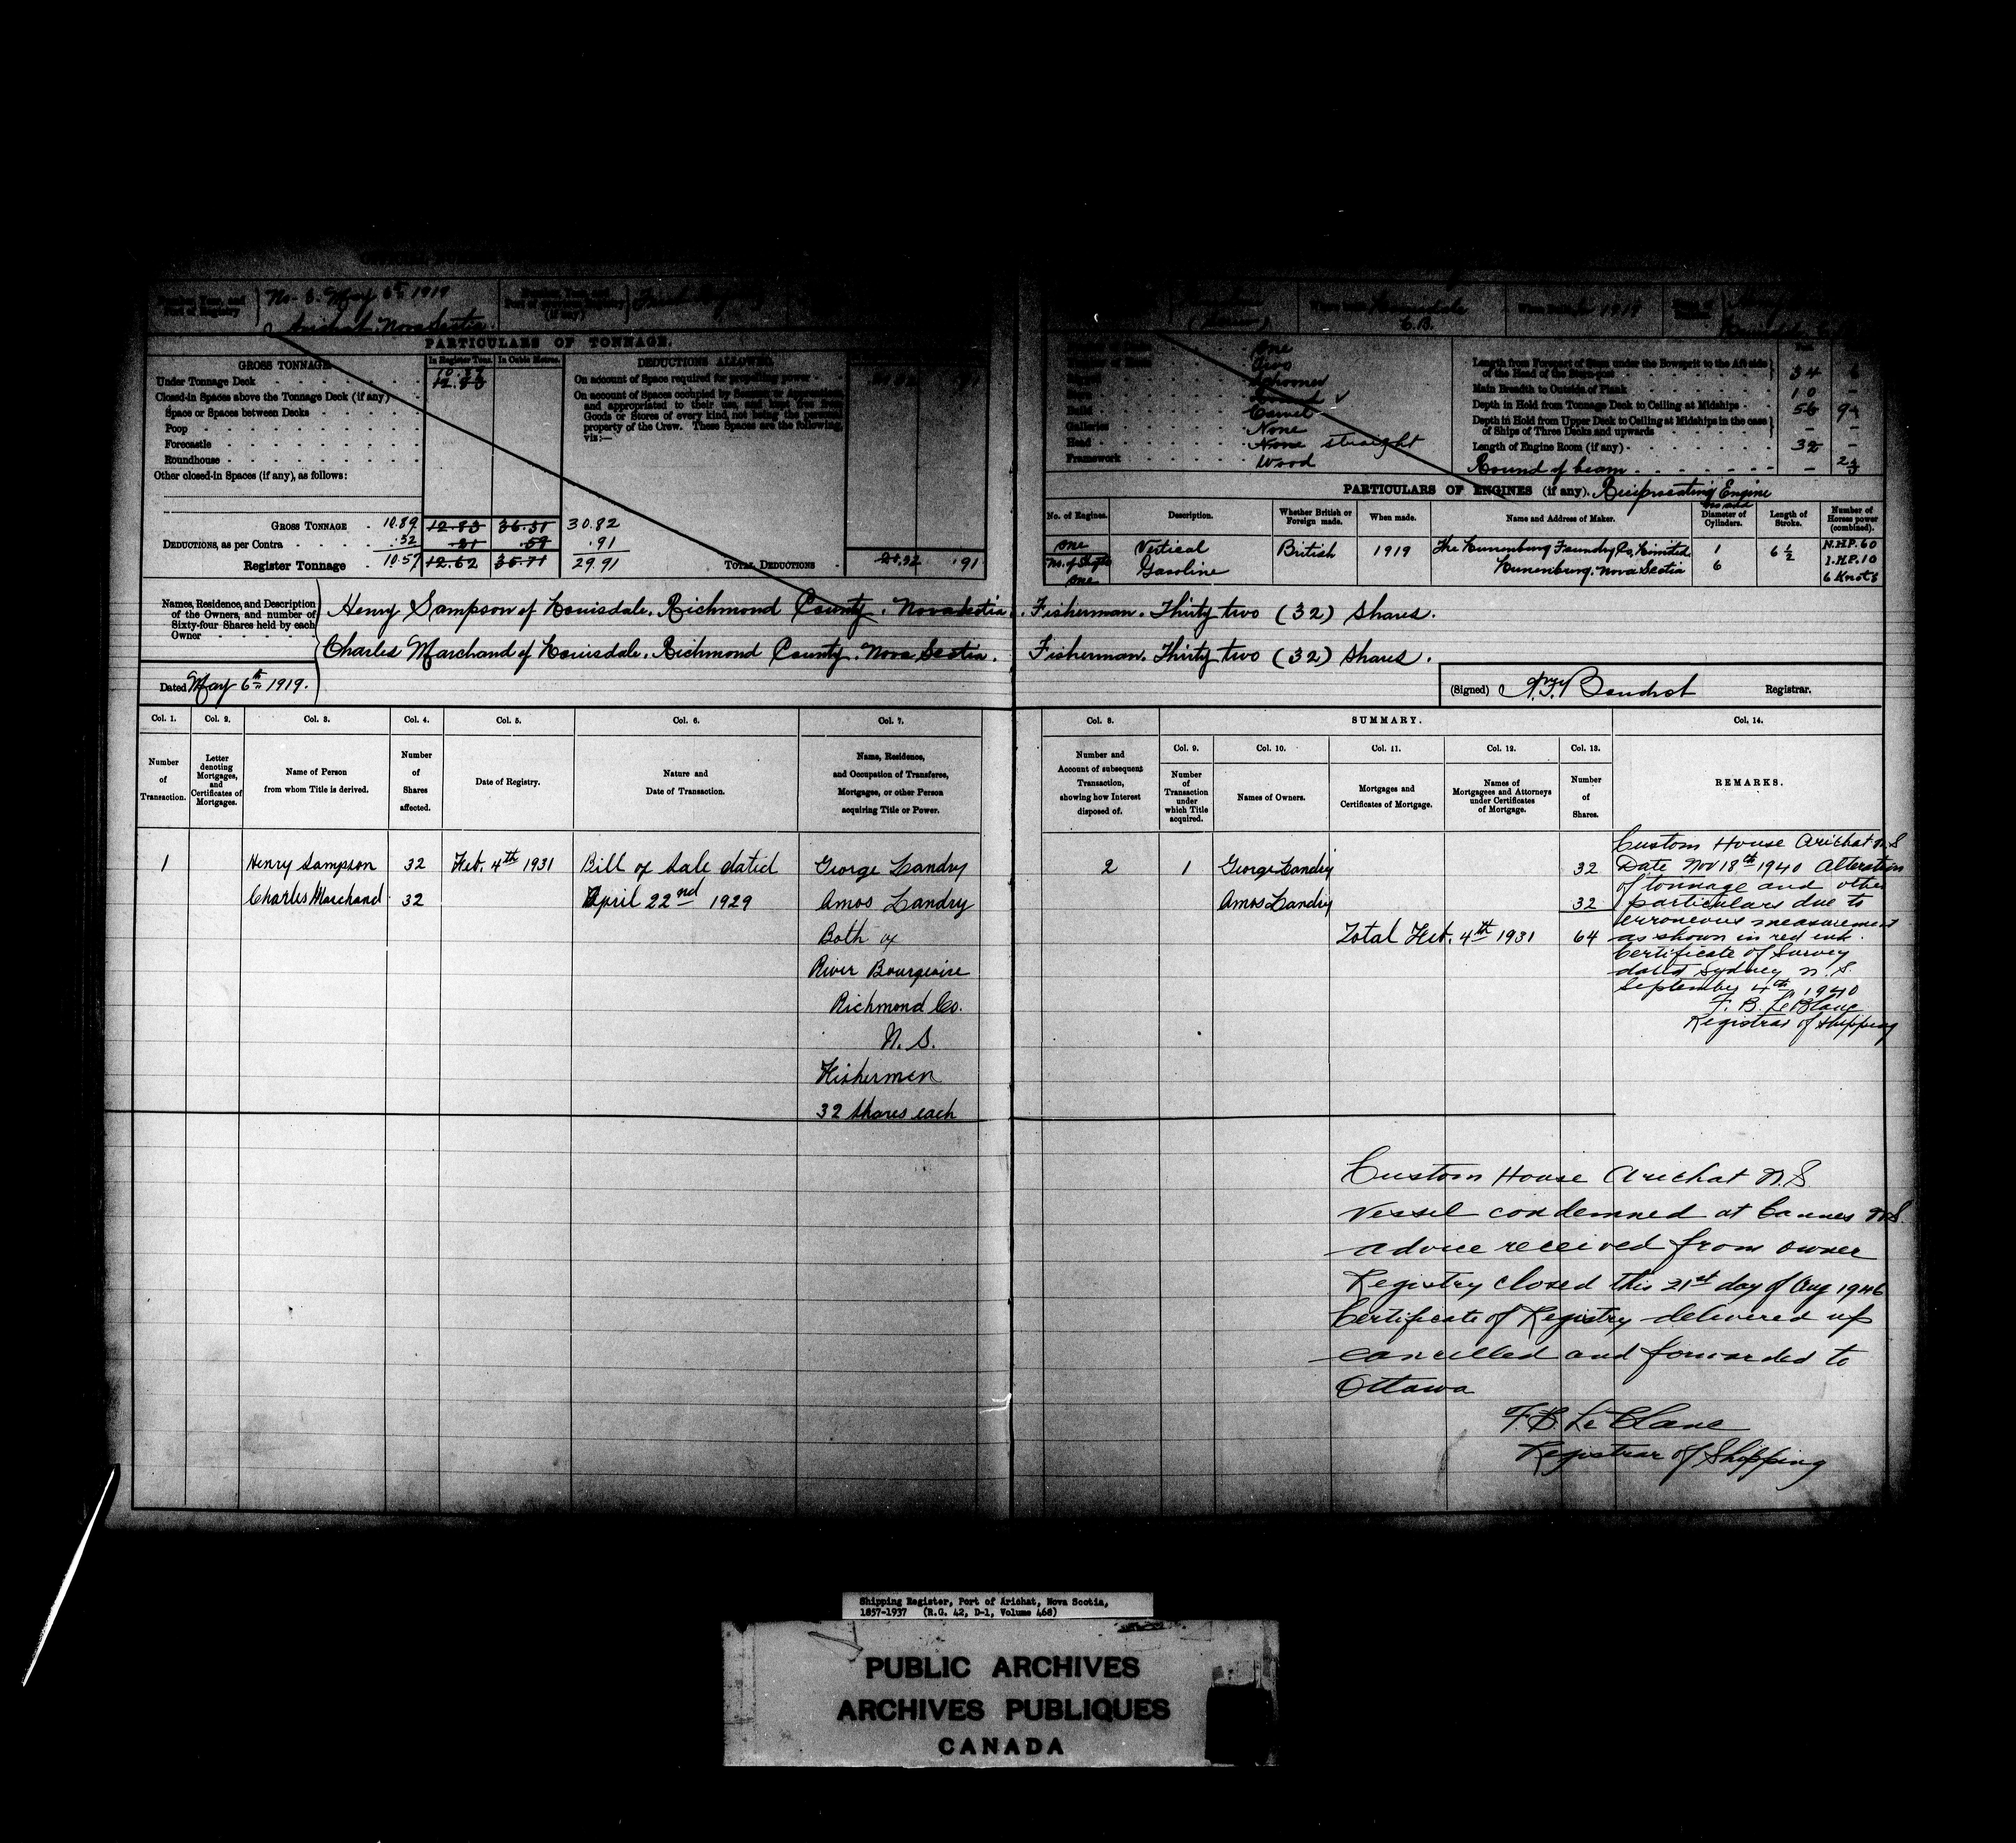 No. 6. May 6th 1919
Arichat Nova Scotia.
PARTICULARS OF TONNAGE.
GROSS TONNAGE.
In Register Tons.
In Cubic Metres.
DEDUCTIONS ALLOWED.
Under Tonnage Deck
10.89
12.83
Closed-in Spaces above the Tonnage Deck (if any)
Space or Spaces between Decks
Poop
Forecastle
Roundhouse
Other closed-in Spaces (if any), as follows:
On account of Space required for propelling power
On account of Spaces occupied by
and appropriated to their use, and kept free from
Goods or Stores of every kind, not being the personal
property of the Crew. These Spaces are the following,
viz:—
GROSS TONNAGE 10.89 12.83 36.31 30.82
DEDUCTIONS, as per Contra .32 .21 .59 .91
Register Tonnage 10.57 12.62 35.71 29.91
TOTAL DEDUCTIONS .32 .91
C.B.
1919
One
Two
Schooner
Carvel
Galleries None
Head None straight
Framework Wood
Length from Forepart of Stem under the Bowsprit to the Aft side
of the Head of the Stern-post 34 6
Main Breadth to Outside of Plank 10 -
Depth in Hold from Tonnage Deck to Ceiling at Midships
Depth in Hold from Upper Deck to Ceiling at Midships in the case
of Ships of Three Decks and upwards - -
Length of Engine Room (if any) 32 -
Round of beam
PARTICULARS OF ENGINES (if any). Reciprocating Engine
No. of Engines.
Description.
Whether British or
Foreign made.
When made.
Name and Address of Maker.
Diameter of
Cylinders.
Length of
Stroke.
Number of
Horses power
(combined).
One
No. of Shafts
One
Vertical
Gasoline
British
1919
The Lunenburg Foundry Co, Limited
Lunenburg, Nova Scotia
1
6
6 1/2
N.H.P. 60
I.H.P. 10
6 Knots
Names, Residence, and Description
of the Owners, and number of
Sixty-four Shares held by each
Owner
Henry Sampson of Louisdale, Richmond County, Nova Scotia. Fisherman. Thirty two (32) Shares.
Charles Marchand of Louisdale, Richmond County, Nova Scotia. Fisherman. Thirty two (32) Shares.
Dated May 6th 1919.
(Signed) Boudrot Registrar.
Col. 1.
Col. 2.
Col. 3.
Col. 4.
Col. 5.
Col. 6.
Col. 7.
Col. 8.
SUMMARY.
Col. 14.
Number
of
Transaction.
Letter
denoting
Mortgages,
and
Certificates of
Mortgages.
Name of Person
from whom Title is derived.
Number
of
Shares
affected.
Date of Registry.
Nature and
Date of Transaction.
Name, Residence,
and Occupation of Transferee,
Mortgages, or other Person
acquiring Title or Power.
Number and
Account of subsequent
Transaction,
showing how Interest
disposed of.
Col. 9.
Number
of
Transaction
under
which Title
acquired.
Col. 10.
Names of Owners.
Col. 11.
Mortgages and
Certificates of Mortgage.
Col. 12.
Names of
Mortgagees and Attorneys
under Certificates
of Mortgage.
Col. 13.
Number
of
Shares.
REMARKS.
1
Henry Sampson 32
Charles Marchand 32
Feb. 4th 1931
Bill of Sale dated
April 22nd 1929
George Landry
Amos Landry
Both of
River Bourgeoise
Richmond Co.
N. S.
Fishermen
32 Shares each
2
1
George Landry 32
Amos Landry 32
Total Feb. 4th 1931 64
Custom House Arichat N.S
Date Nov 18th 1940 Alteration
of tonnage and other
particulars due to
erroneous measurement
as shown in red ink.
Certificate of Survey
dated Sydney N. S.
September 4th 1940
F. B. LeBlanc
Registrar of Shipping
Custom House Arichat N.S
Vessel condemned at Cannes N.S.
advice received from owner
Registry closed this 21st day of Aug 1946
Certificate of Registry delivered up
cancelled and forwarded to
Ottawa
F. B. LeBlanc
Registrar of Shipping
Shipping Register, Port of Arichat, Nova Scotia,
1857-1937 (R.G. 42, D-1, Volume 468)
PUBLIC ARCHIVES
ARCHIVES PUBLIQUES
CANADA